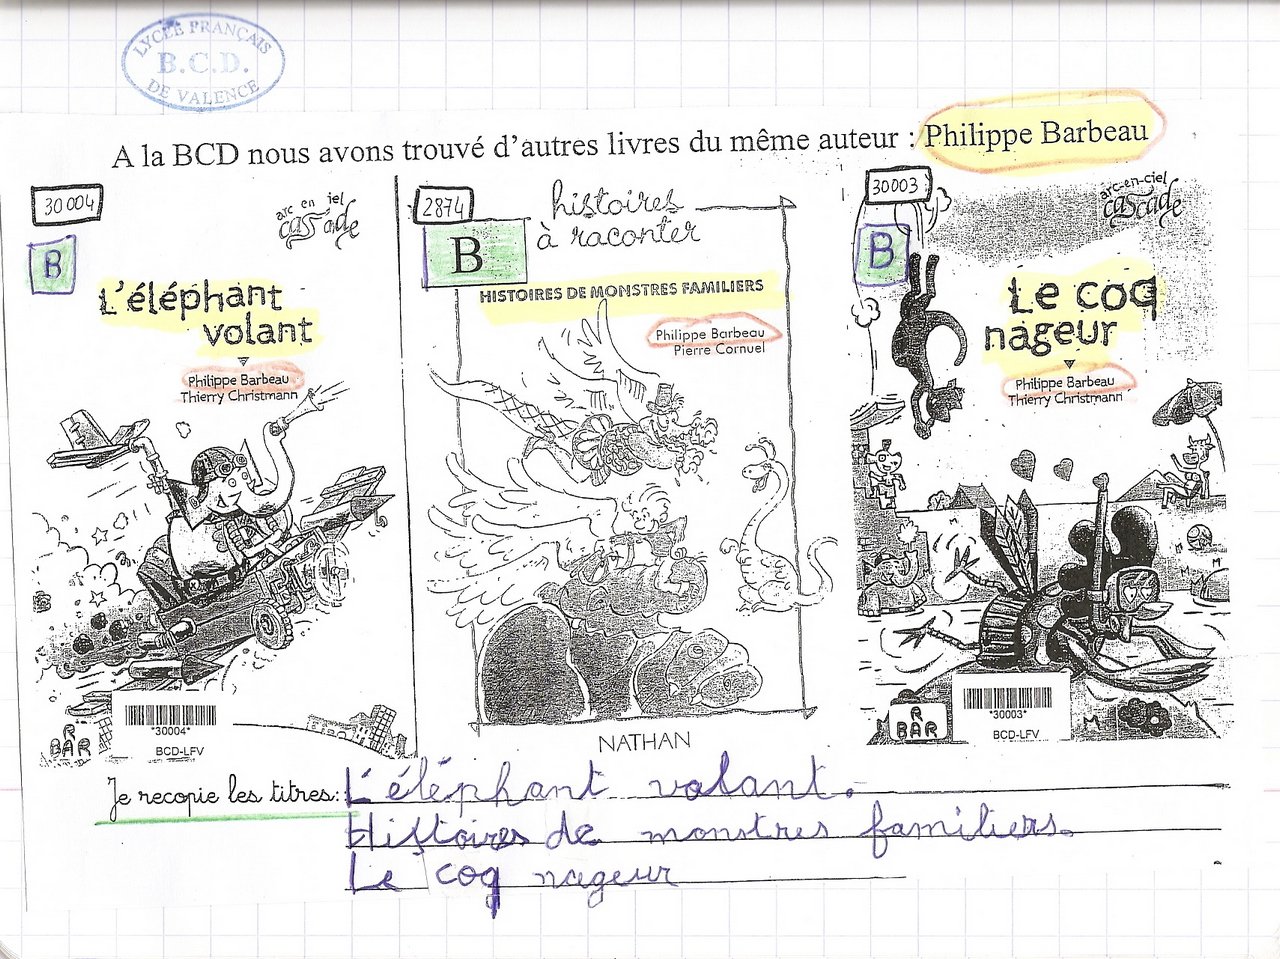 LYCÉE FRANÇAIS
B.C.D.
DE VALENCE
A la BCD nous avons trouvé d'autres livres du même auteur : Philippe Barbeau
30004
arc en ciel
cascade
B
L'éléphant
volant
Philippe Barbeau
Thierry Christmann
R
BAR
*30004*
BCD-LFV
2874
histoires
à raconter
B
HISTOIRES DE MONSTRES FAMILIERS
Philippe Barbeau
Pierre Cornuel
NATHAN
30003
arc-en-ciel
cascade
B
Le coq
nageur
Philippe Barbeau
Thierry Christmann
R
BAR
*30003*
BCD-LFV
Je recopie les titres: L'éléphant volant.
Histoires de monstres familiers.
Le coq nageur